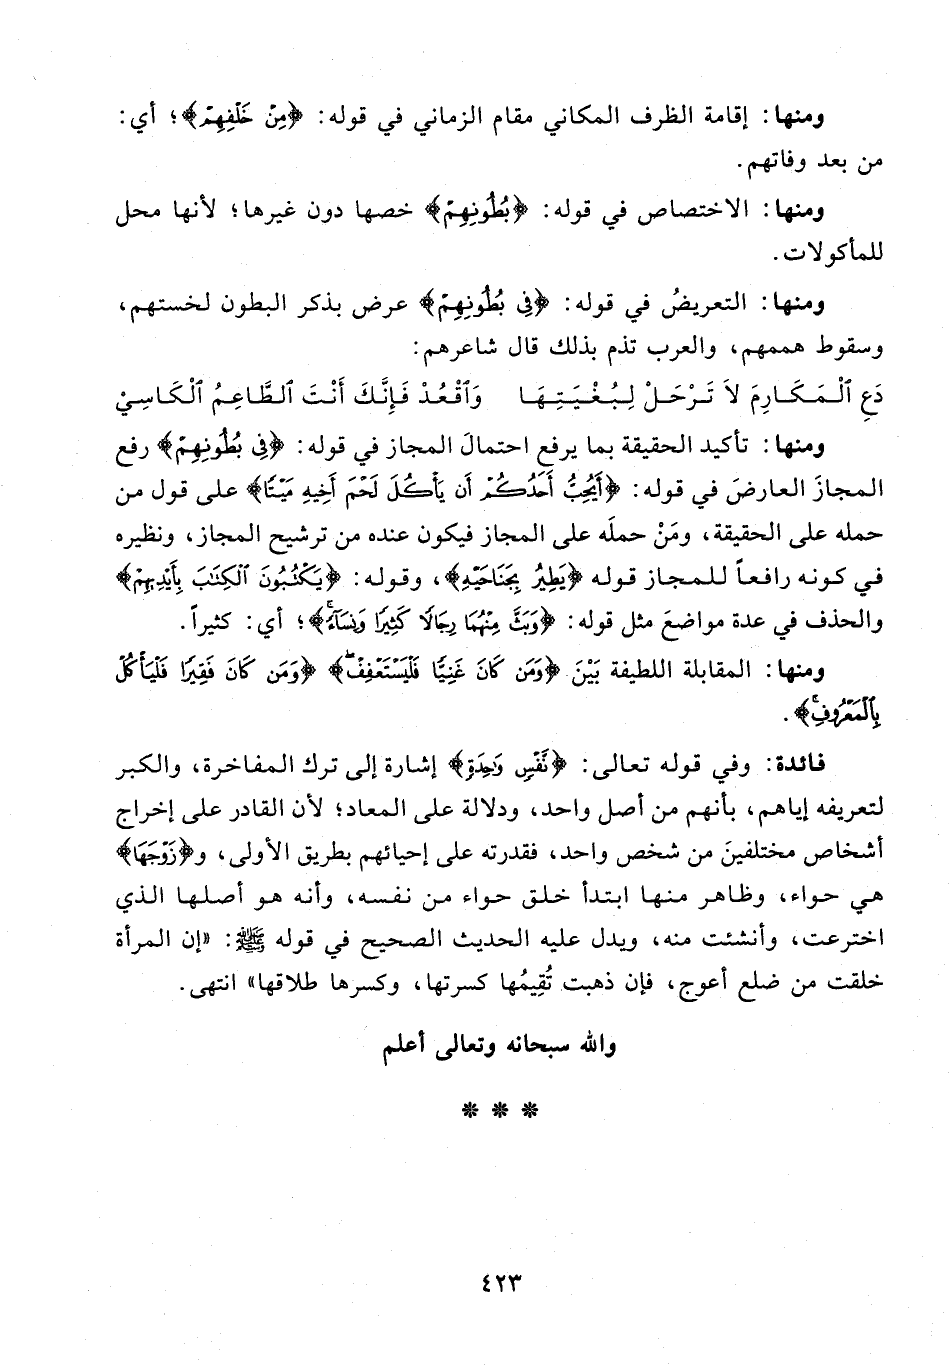 ومنها: إقامة الظرف المكاني مقام الزماني في قوله: ﴿مِنْ خَلْفِهِمْ﴾؛ أي:
من بعد وفاتهم.
ومنها: الاختصاص في قوله: ﴿بُطُونِهِمْ﴾ خصها دون غيرها؛ لأنها محل
للمأكولات.
ومنها: التعريضُ في قوله: ﴿فِي بُطُونِهِمْ﴾ عرض بذكر البطون لخستهم،
وسقوط هممهم، والعرب تذم بذلك قال شاعرهم:
دَعِ ٱلْمَكَارِمَ لاَ تَرْحَلْ لِبُغْيَتِهَا وَٱقْعُدْ فَإِنَّكَ أَنْتَ ٱلطَّاعِمُ ٱلْكَاسِيْ
ومنها: تأكيد الحقيقة بما يرفع احتمالَ المجاز في قوله: ﴿فِي بُطُونِهِمْ﴾ رفع
المجازَ العارضَ في قوله: ﴿أَيُحِبُّ أَحَدُكُمْ أَن يَأْكُلَ لَحْمَ أَخِيهِ مَيْتًا﴾ على قول من
حمله على الحقيقة، ومَنْ حملَه على المجاز فيكون عنده من ترشيح المجاز، ونظيره
في كونه رافعاً للمجاز قوله ﴿يَطِيرُ بِجَنَاحَيْهِ﴾، وقوله: ﴿يَكْتُبُونَ ٱلْكِتَٰبَ بِأَيْدِيهِمْ﴾
والحذف في عدة مواضعَ مثل قوله: ﴿وَبَثَّ مِنْهُمَا رِجَالًا كَثِيرًا وَنِسَآءً ۚ﴾؛ أي: كثيراً.
ومنها: المقابلة اللطيفة بَيْنَ ﴿وَمَن كَانَ غَنِيًّا فَلْيَسْتَعْفِفْ ۖ﴾ ﴿وَمَن كَانَ فَقِيرًا فَلْيَأْكُلْ
بِٱلْمَعْرُوفِ ۚ﴾.
فائدة: وفي قوله تعالى: ﴿نَّفْسٍ وَٰحِدَةٍ﴾ إشارة إلى ترك المفاخرة، والكبر
لتعريفه إياهم، بأنهم من أصل واحد، ودلالة على المعاد؛ لأن القادر على إخراج
أشخاص مختلفينَ من شخص واحد، فقدرته على إحيائهم بطريق الأولى، و﴿زَوْجَهَا﴾
هي حواء، وظاهر منها ابتدأ خلق حواء من نفسه، وأنه هو أصلها الذي
اخترعت، وأنشئت منه، ويدل عليه الحديث الصحيح في قوله ﷺ: «إن المرأة
خلقت من ضلع أعوج، فإن ذهبت تُقِيمُها كسرتها، وكسرها طلاقها» انتهى.
والله سبحانه وتعالى أعلم
* * *
٤٢٣